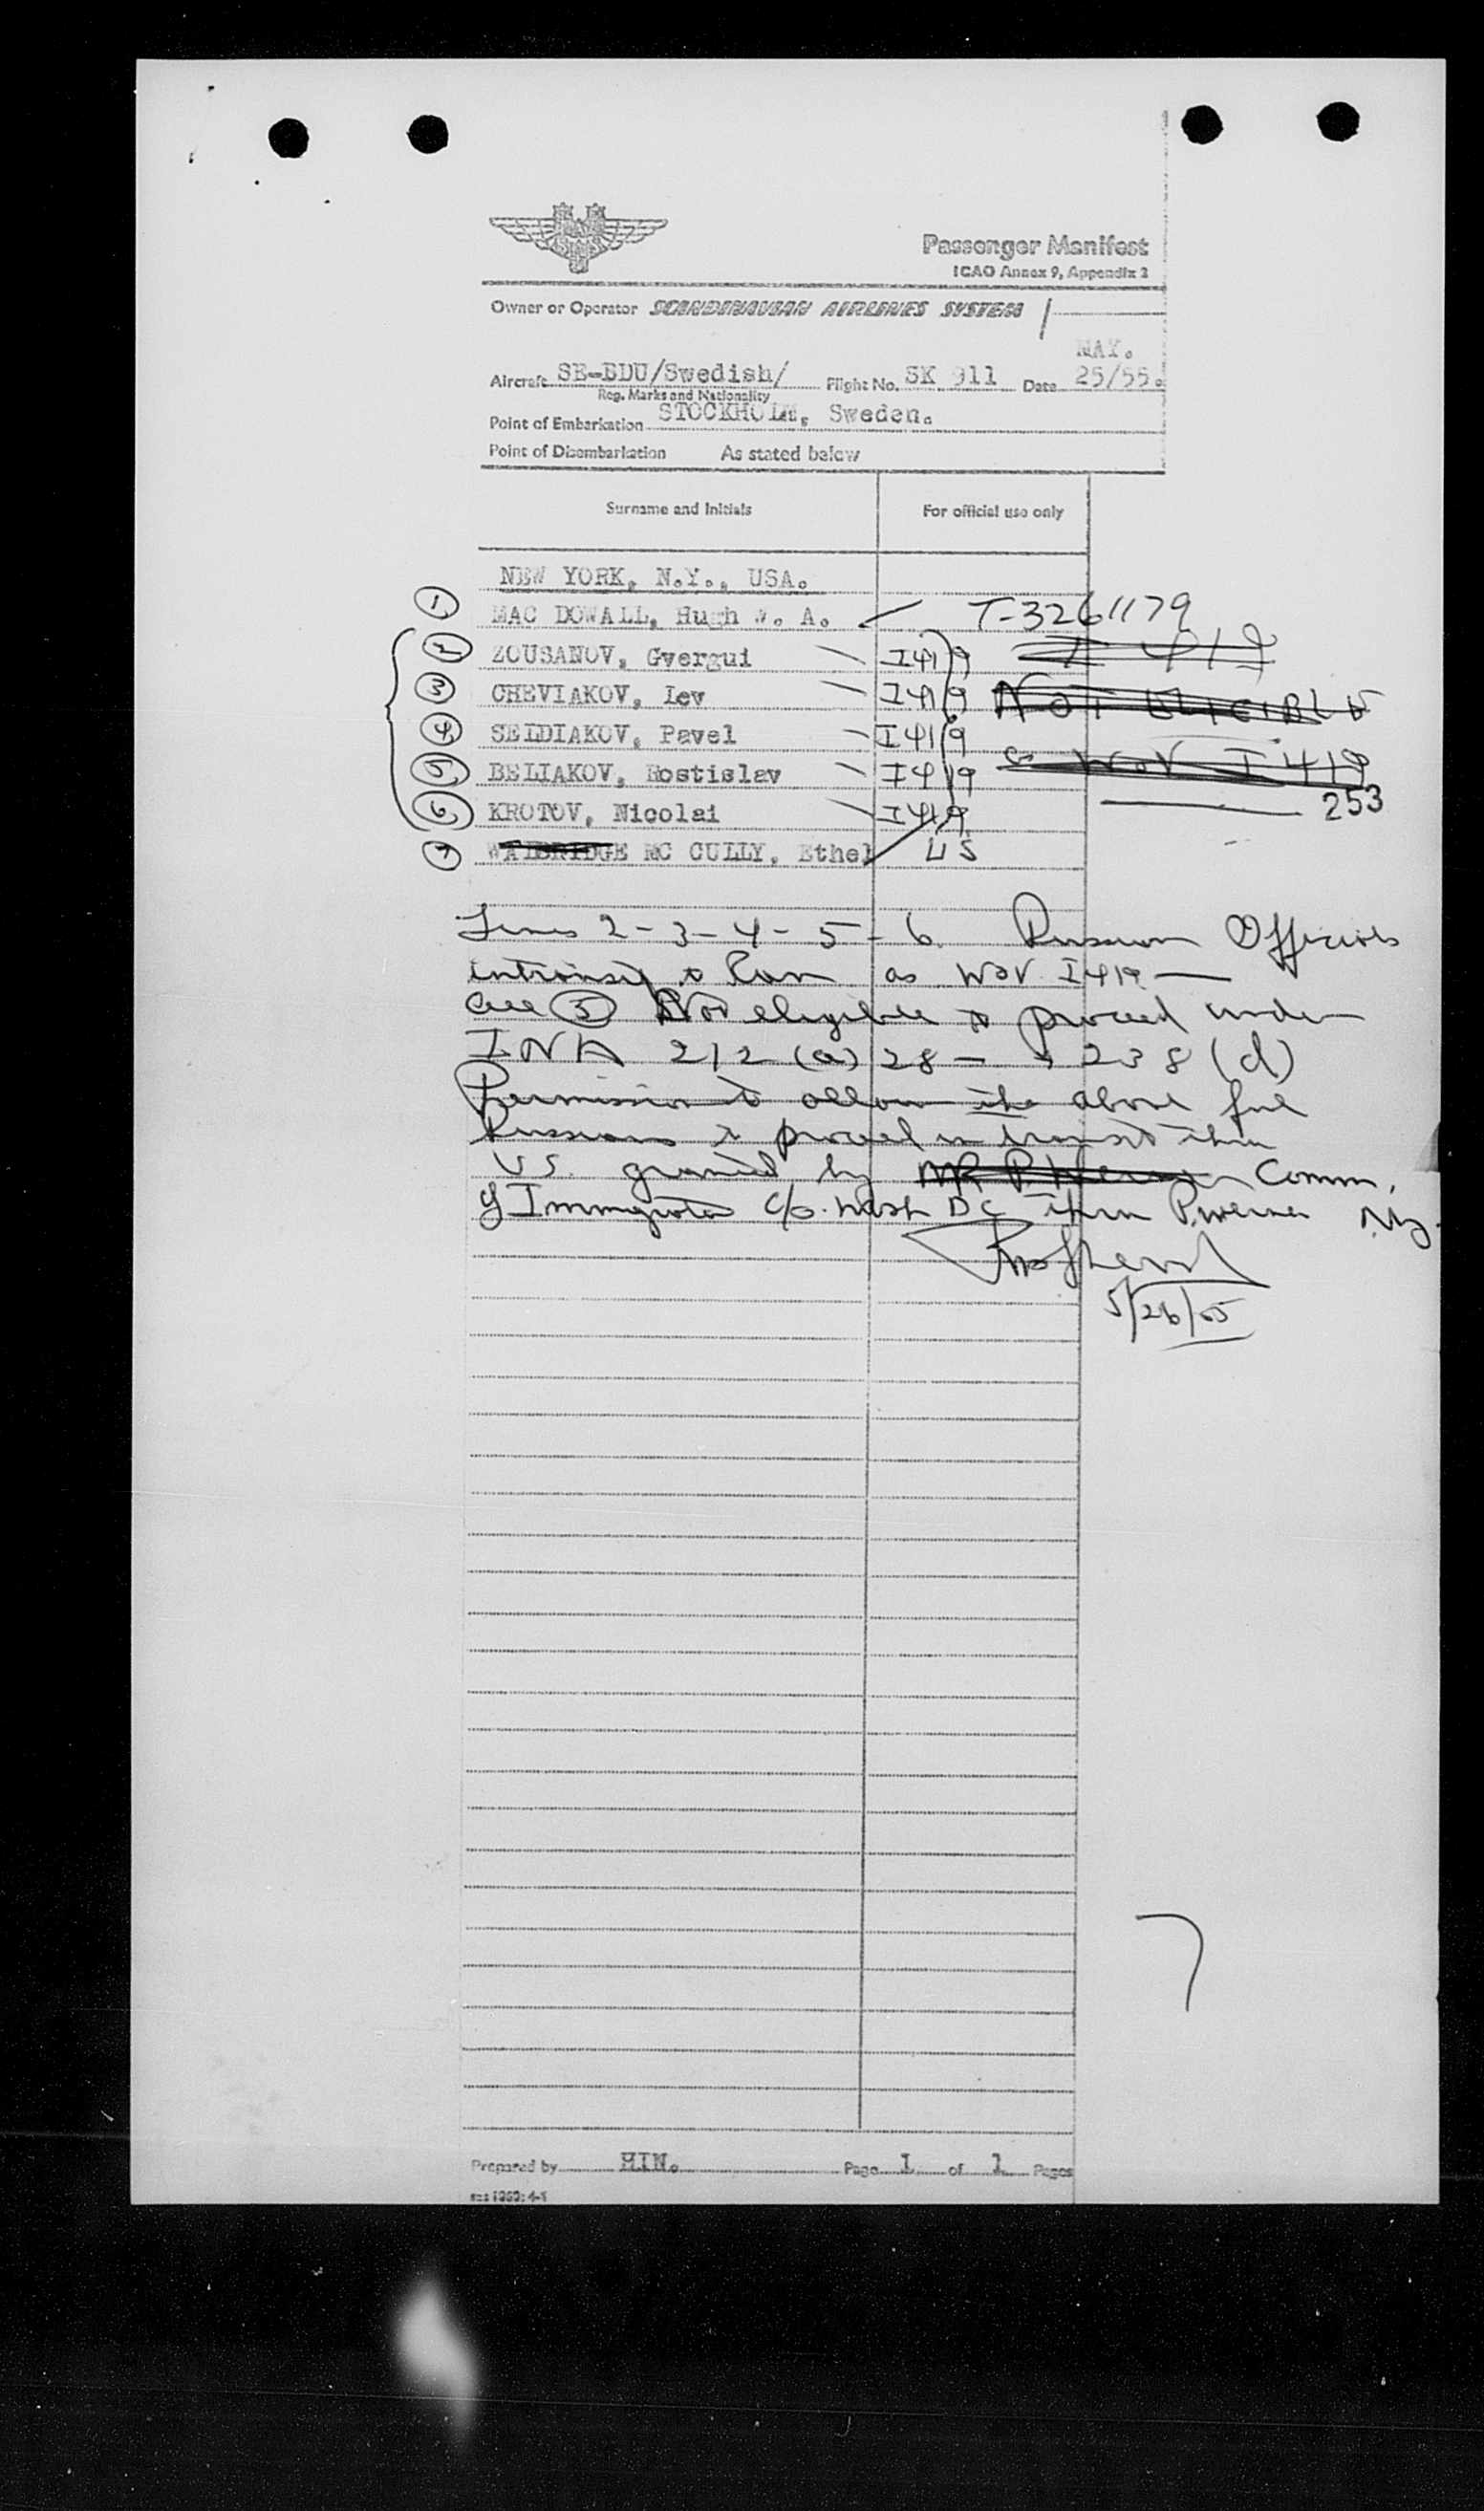 Passenger Manifest
ICAO Annex 9, Appendix 2
Owner or Operator SCANDINAVIAN AIRLINES SYSTEM
MAY.
Aircraft SE-BDU/Swedish/ Flight No. SK 911 Date 25/55.
Reg. Marks and Nationality
Point of Embarkation STOCKHOLM, Sweden.
Point of Disembarkation As stated below
Surname and Initials For official use only
NEW YORK, N.Y., USA.
1 MAC DOWALL, Hugh W. A. T-3261179
2 ZOUSANOV, Gvergui I419 I 419
3 CHEVIAKOV, Lev I419 NOT ELIGIBLE
4 SELDIAKOV, Pavel I419
5 BELIAKOV, Rostislav I419 WOV I 419
6 KROTOV, Nicolai I419 253
7 WALBRIDGE MC CULLY, Ethel US
Lines 2-3-4-5-6. Russian Officials
intransit to as WOV I419
All 5 Not eligible to proceed under
INA 212 (a) 28 - 238 (d)
Permission to allow the above five
Russians to proceed in transit thru
U.S. granted by MR P. Werner Comm.
of Immigration C/O. Wash DC thru P. Werner
5/26/55
7
Prepared by HIN. Page 1 of 1 Pages